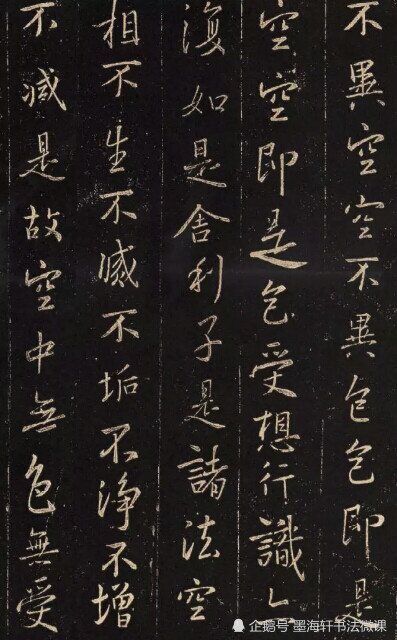 不異空空不異色色即是
空空即是色受想行識亦
復如是舍利子是諸法空
相不生不滅不垢不淨不增
不減是故空中無色無受
企鹅号 墨海轩书法微课